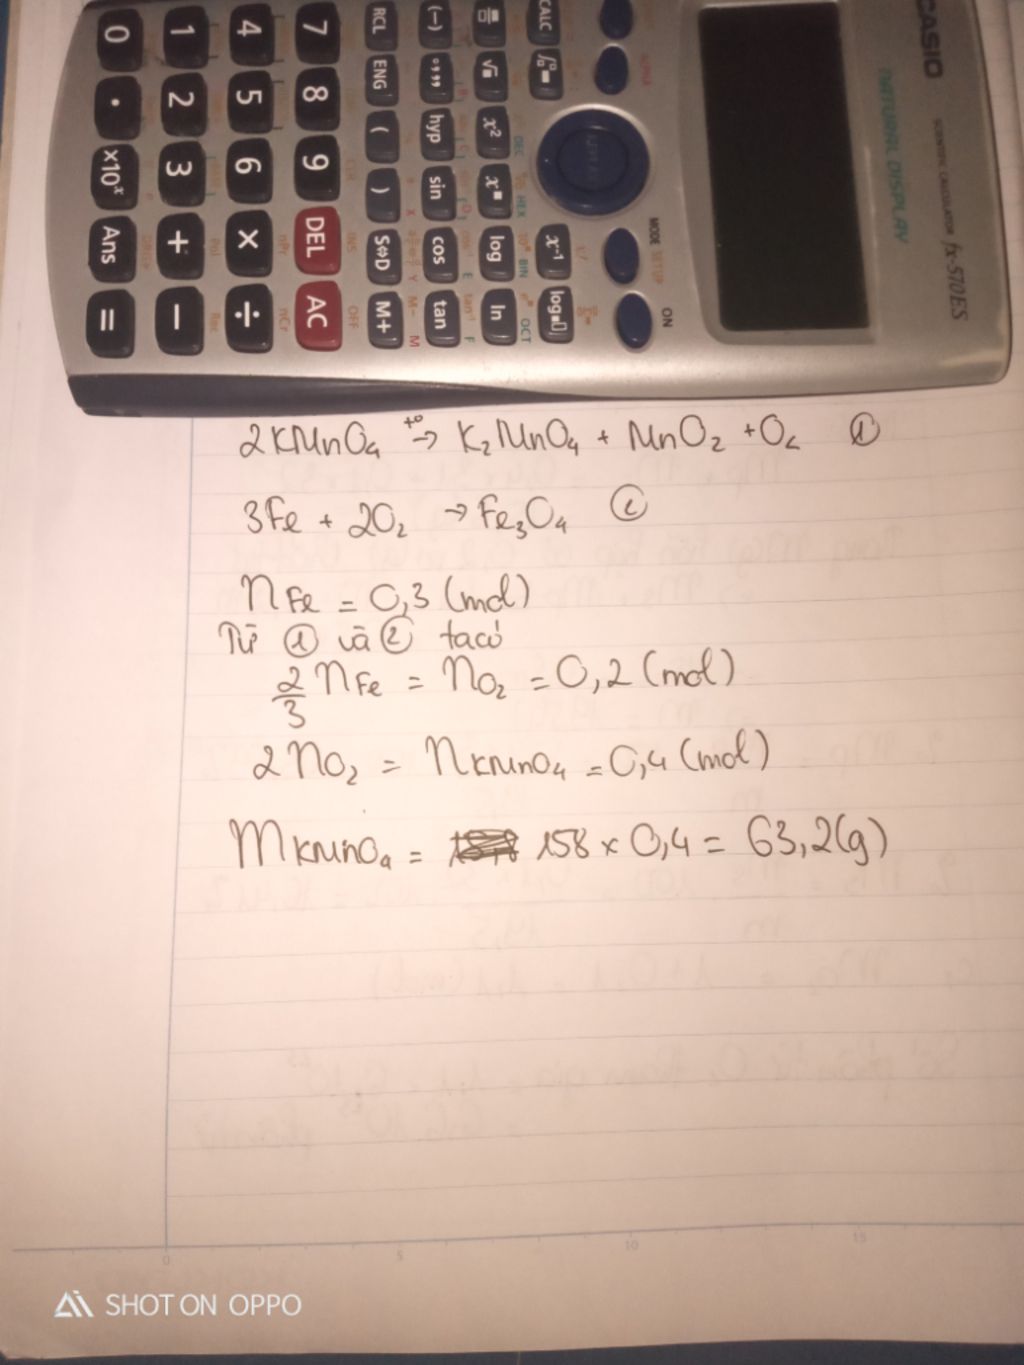 CASIO
SCIENTIFIC CALCULATOR fx-570ES
NATURAL DISPLAY
MODE SETUP ON
CALC x⁻¹ log
x² log ln
(−) °,,, hyp sin cos tan
RCL ENG ( ) S⇔D M+
7 8 9 DEL AC
4 5 6 × ÷
1 2 3 + −
0 . ×10ˣ Ans =
2KMnO₄ →(t°) K₂MnO₄ + MnO₂ + O₂ ①
3Fe + 2O₂ → Fe₃O₄ ②
nFe = 0,3 (mol)
Từ ① và ② ta có
2/3 nFe = nO₂ = 0,2 (mol)
2nO₂ = nKMnO₄ = 0,4 (mol)
mKMnO₄ = 158 × 0,4 = 63,2(g)
0 5 10 15
SHOT ON OPPO